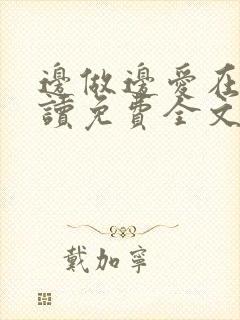 邊做邊愛在
讀免費全文
戴加寧